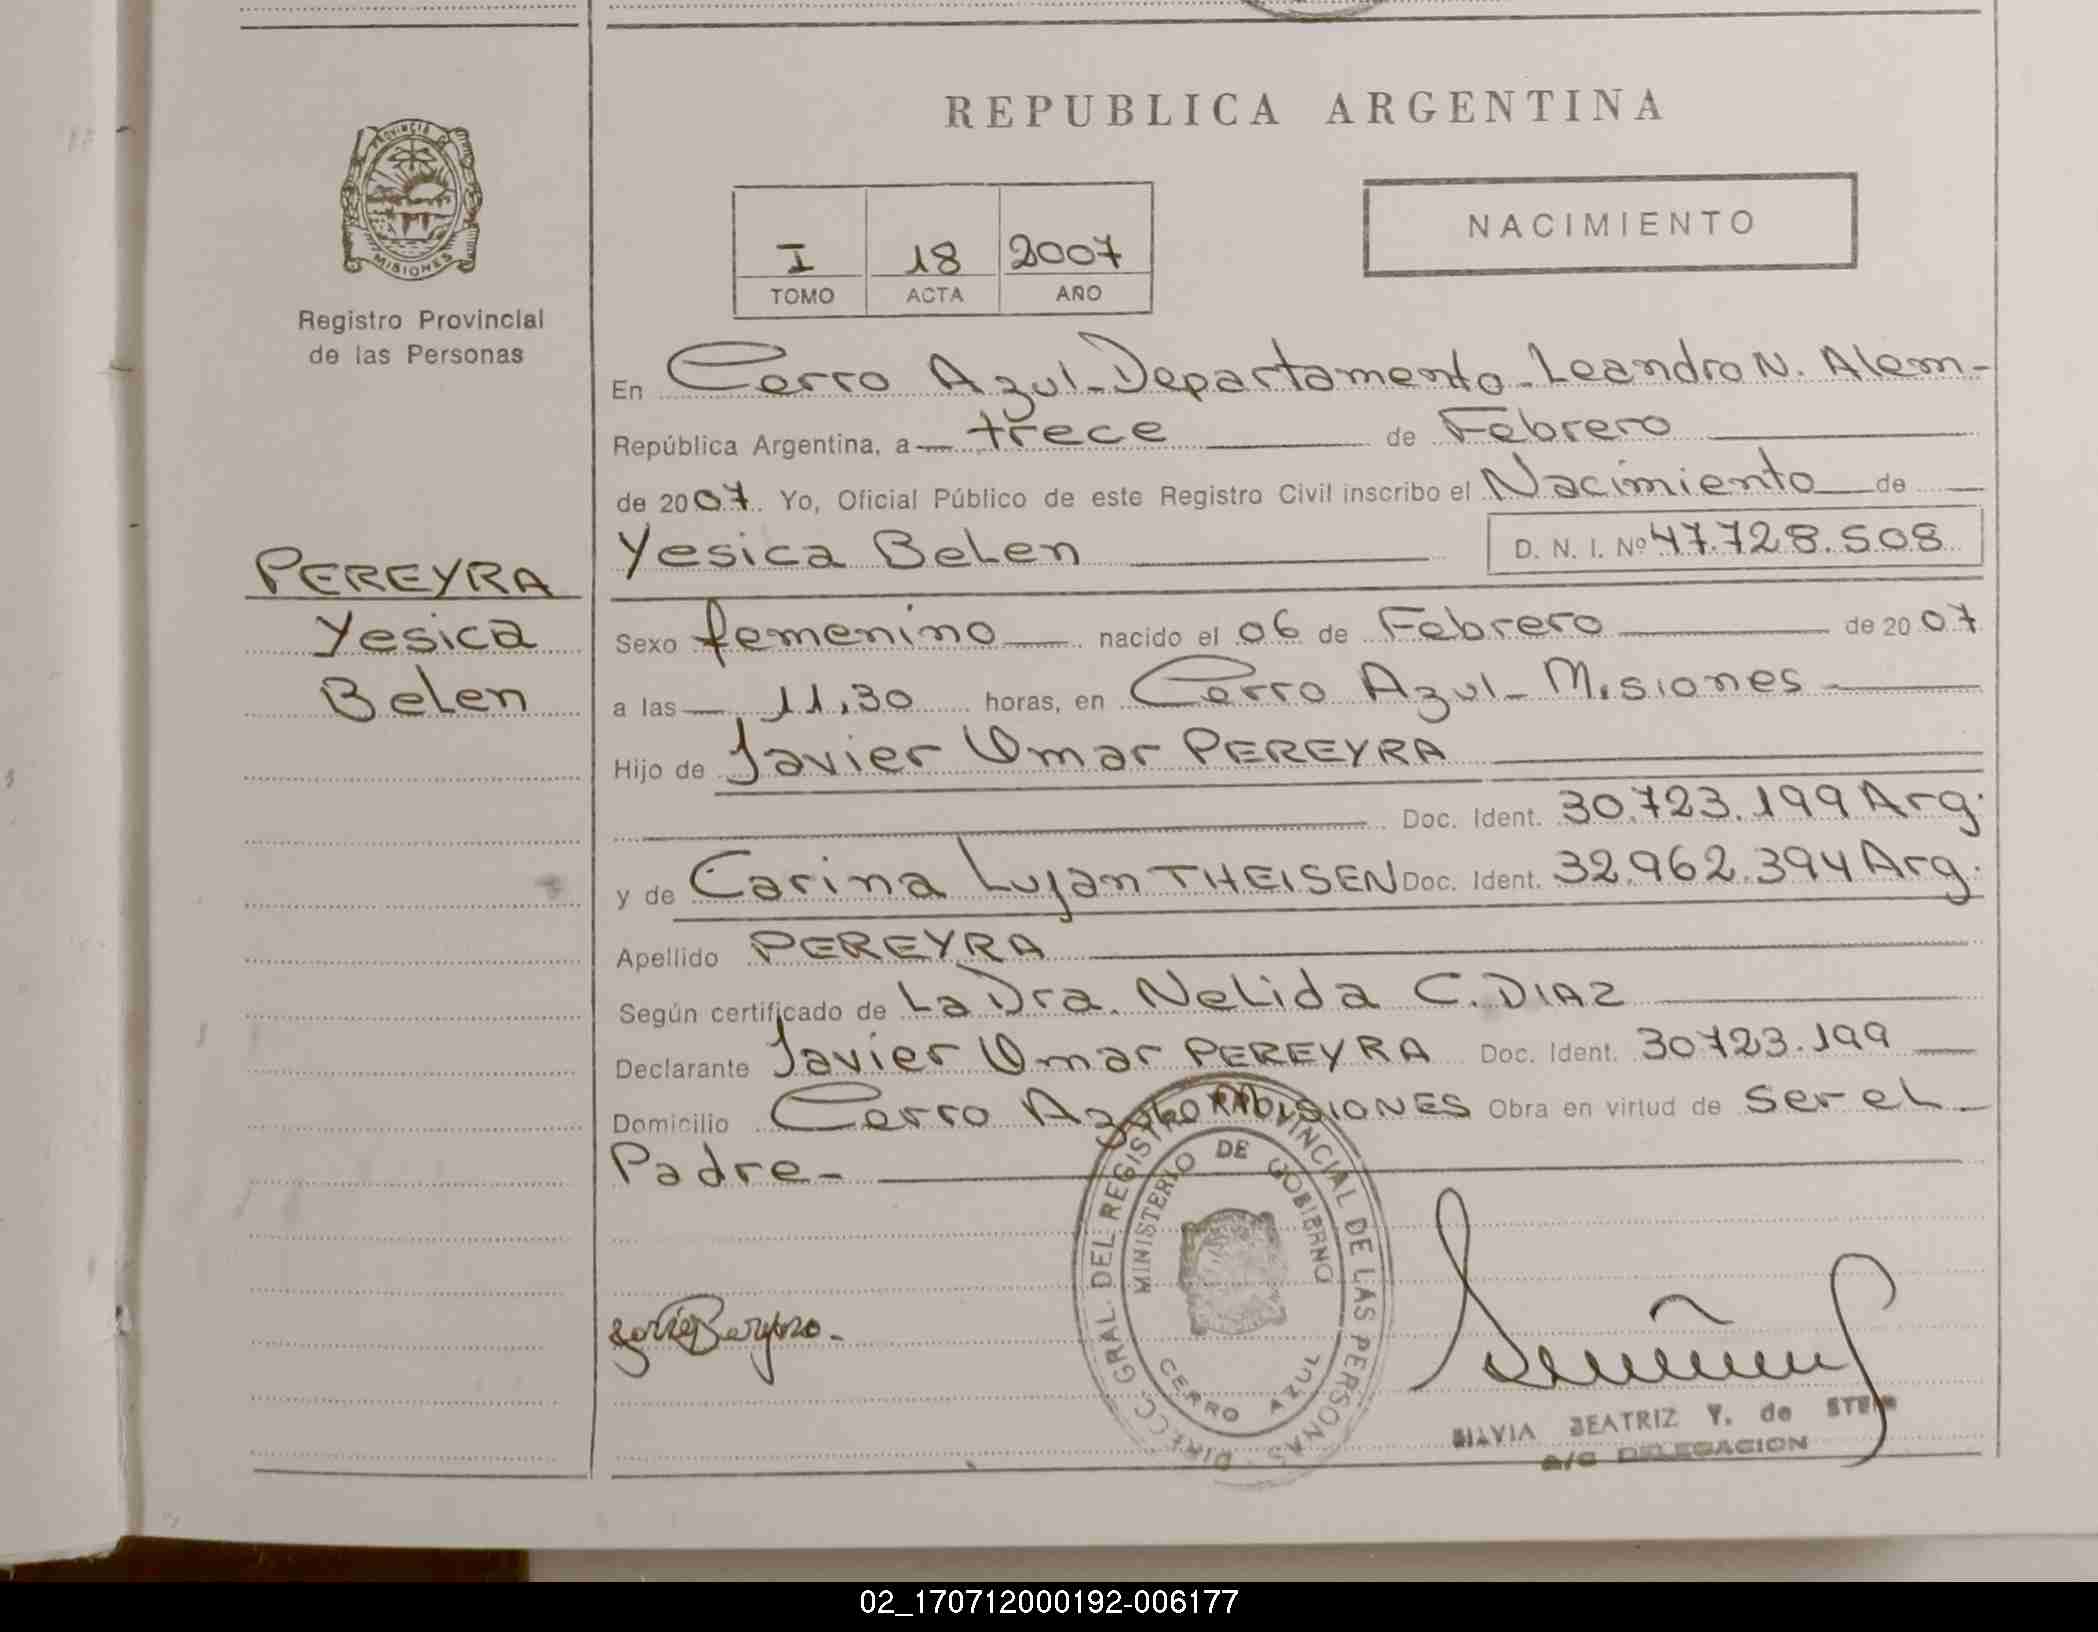 REPUBLICA ARGENTINA
PROVINCIA DE
MISIONES
Registro Provincial
de las Personas
NACIMIENTO
I 18 2007
TOMO ACTA AÑO
En Cerro Azul-Departamento-Leandro N. Alem-
República Argentina, a trece de Febrero
de 2007. Yo, Oficial Público de este Registro Civil inscribo el Nacimiento de
Yesica Belen D. N. I. Nº 47.728.508
PEREYRA
Yesica
Belen
Sexo femenino nacido el 06 de Febrero de 2007
a las 11,30 horas, en Cerro Azul-Misiones
Hijo de Javier Omar PEREYRA
Doc. Ident. 30.723.199 Arg.
y de Carina Lujan THEISEN Doc. Ident. 32.962.394 Arg.
Apellido PEREYRA
Según certificado de La Dra. Nelida C. DIAZ
Declarante Javier Omar PEREYRA Doc. Ident. 30723.199
Domicilio Cerro Azul MISIONES Obra en virtud de ser el-
Padre-
DIRECC. GRAL. DEL REGISTRO PROVINCIAL DE LAS PERSONAS
MINISTERIO DE GOBIERNO
CERRO AZUL
SILVIA BEATRIZ Y. de STEIN
a/c DELEGACION
02_170712000192-006177